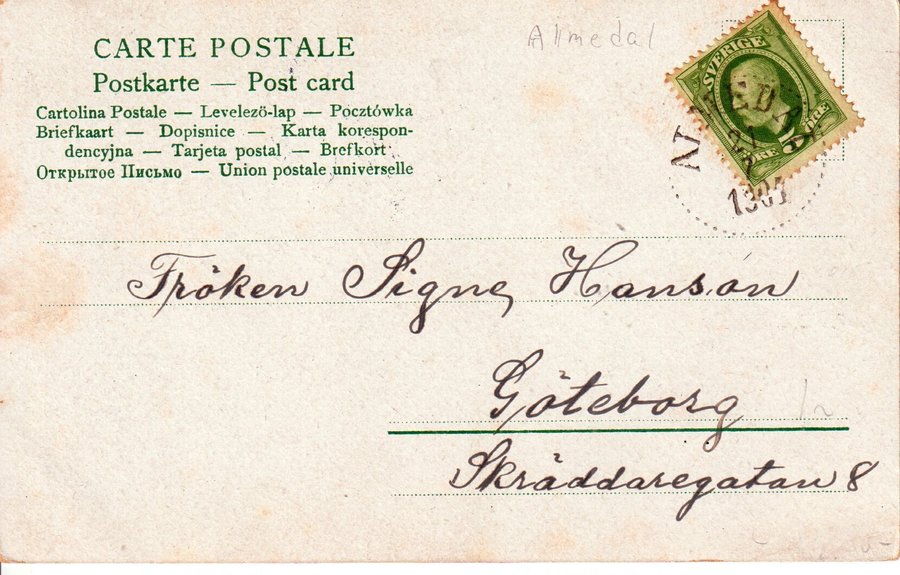 CARTE POSTALE
Postkarte — Post card
Cartolina Postale — Levelező-lap — Pocztówka
Briefkaart — Dopisnice — Karta korespon-
dencyjna — Tarjeta postal — Brefkort
Открытое Письмо — Union postale universelle
Allmedal
SVERIGE
5 ÖRE
Fröken Signe Hanson
Göteborg
Skräddaregatan 8